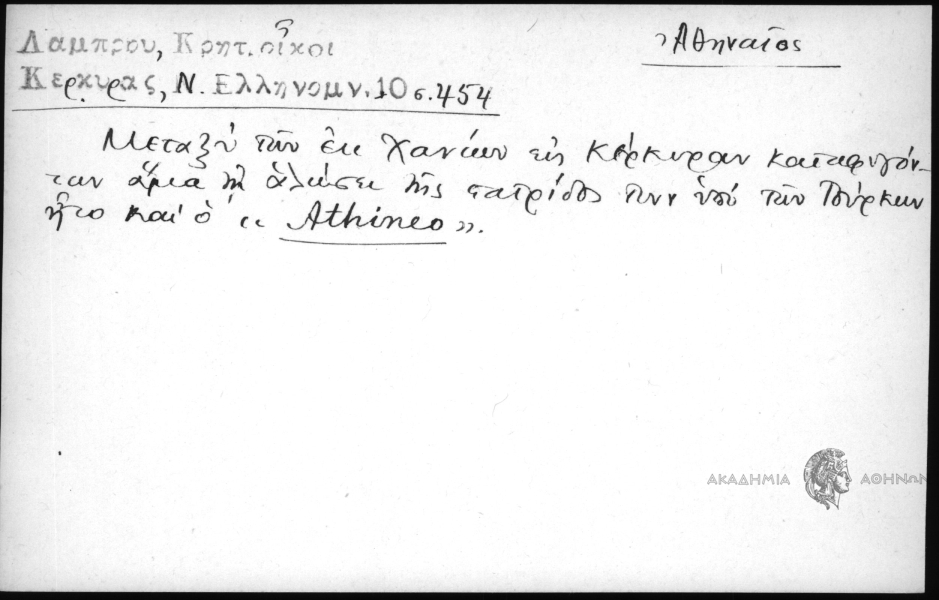 Λαμπρου, Κρητ. οἶκοι
Κερκυρας, Ν. Ελληνομν. 10 σ. 454
Ἀθηναῖος
Μεταξὺ τῶν ἐκ Χανίων εἰς Κέρκυραν καταφυγόν-
των ἅμα τῇ ἁλώσει τῆς πατρίδος των ὑπὸ τῶν Τούρκων
ἦτο καὶ ὁ « Athineo ».
ΑΚΑΔΗΜΙΑ ΑΘΗΝΩΝ